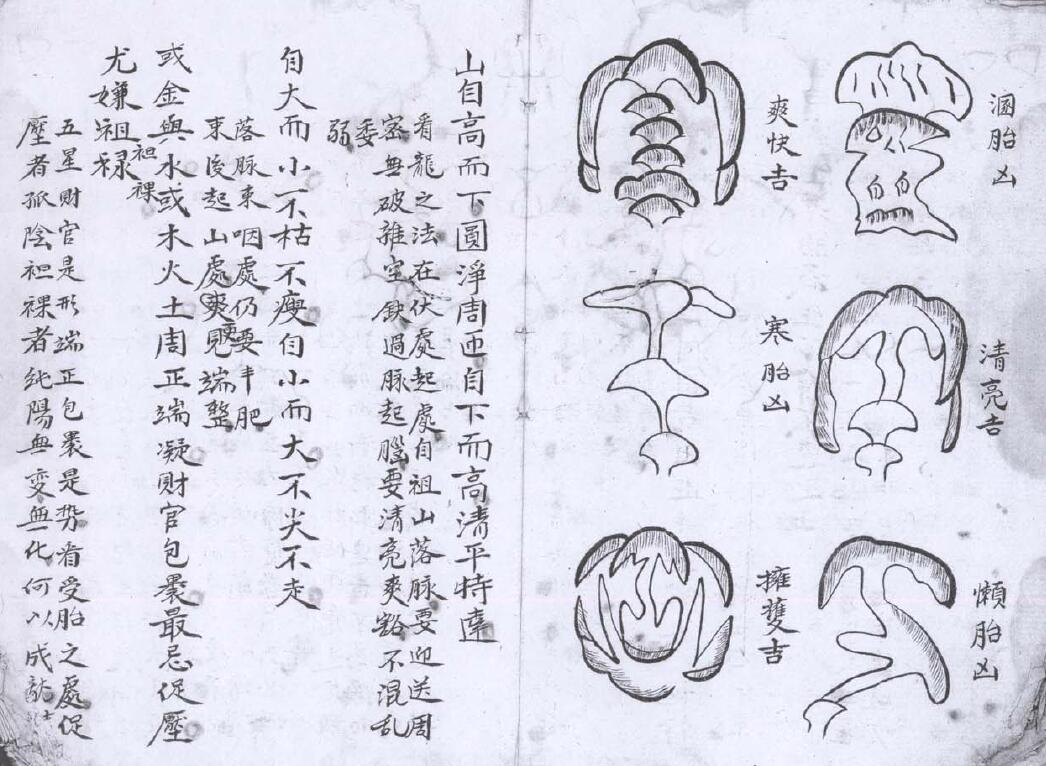 溷胎凶
清亮吉
懶胎凶
爽快吉
寒胎凶
擁雙吉
山自高而下圓淨周匝自下而高清平特達
看龍之法在伏處起處自祖山落脉要迎送周
密無破雜空缺過脉起腦要清亮爽豁不混乱
委
弱
自大而小不枯不瘦自小而大不尖不走
落脉束咽處仍要丰肥
束後起山處爽見端整
或金與水或木火土周正端凝財官包裹最忌促壓
袒裸
尤嫌祖祿
五星財官是形端正包裹是势有受胎之處促
壓者孤陰袒裸者純陽無变無化何以成